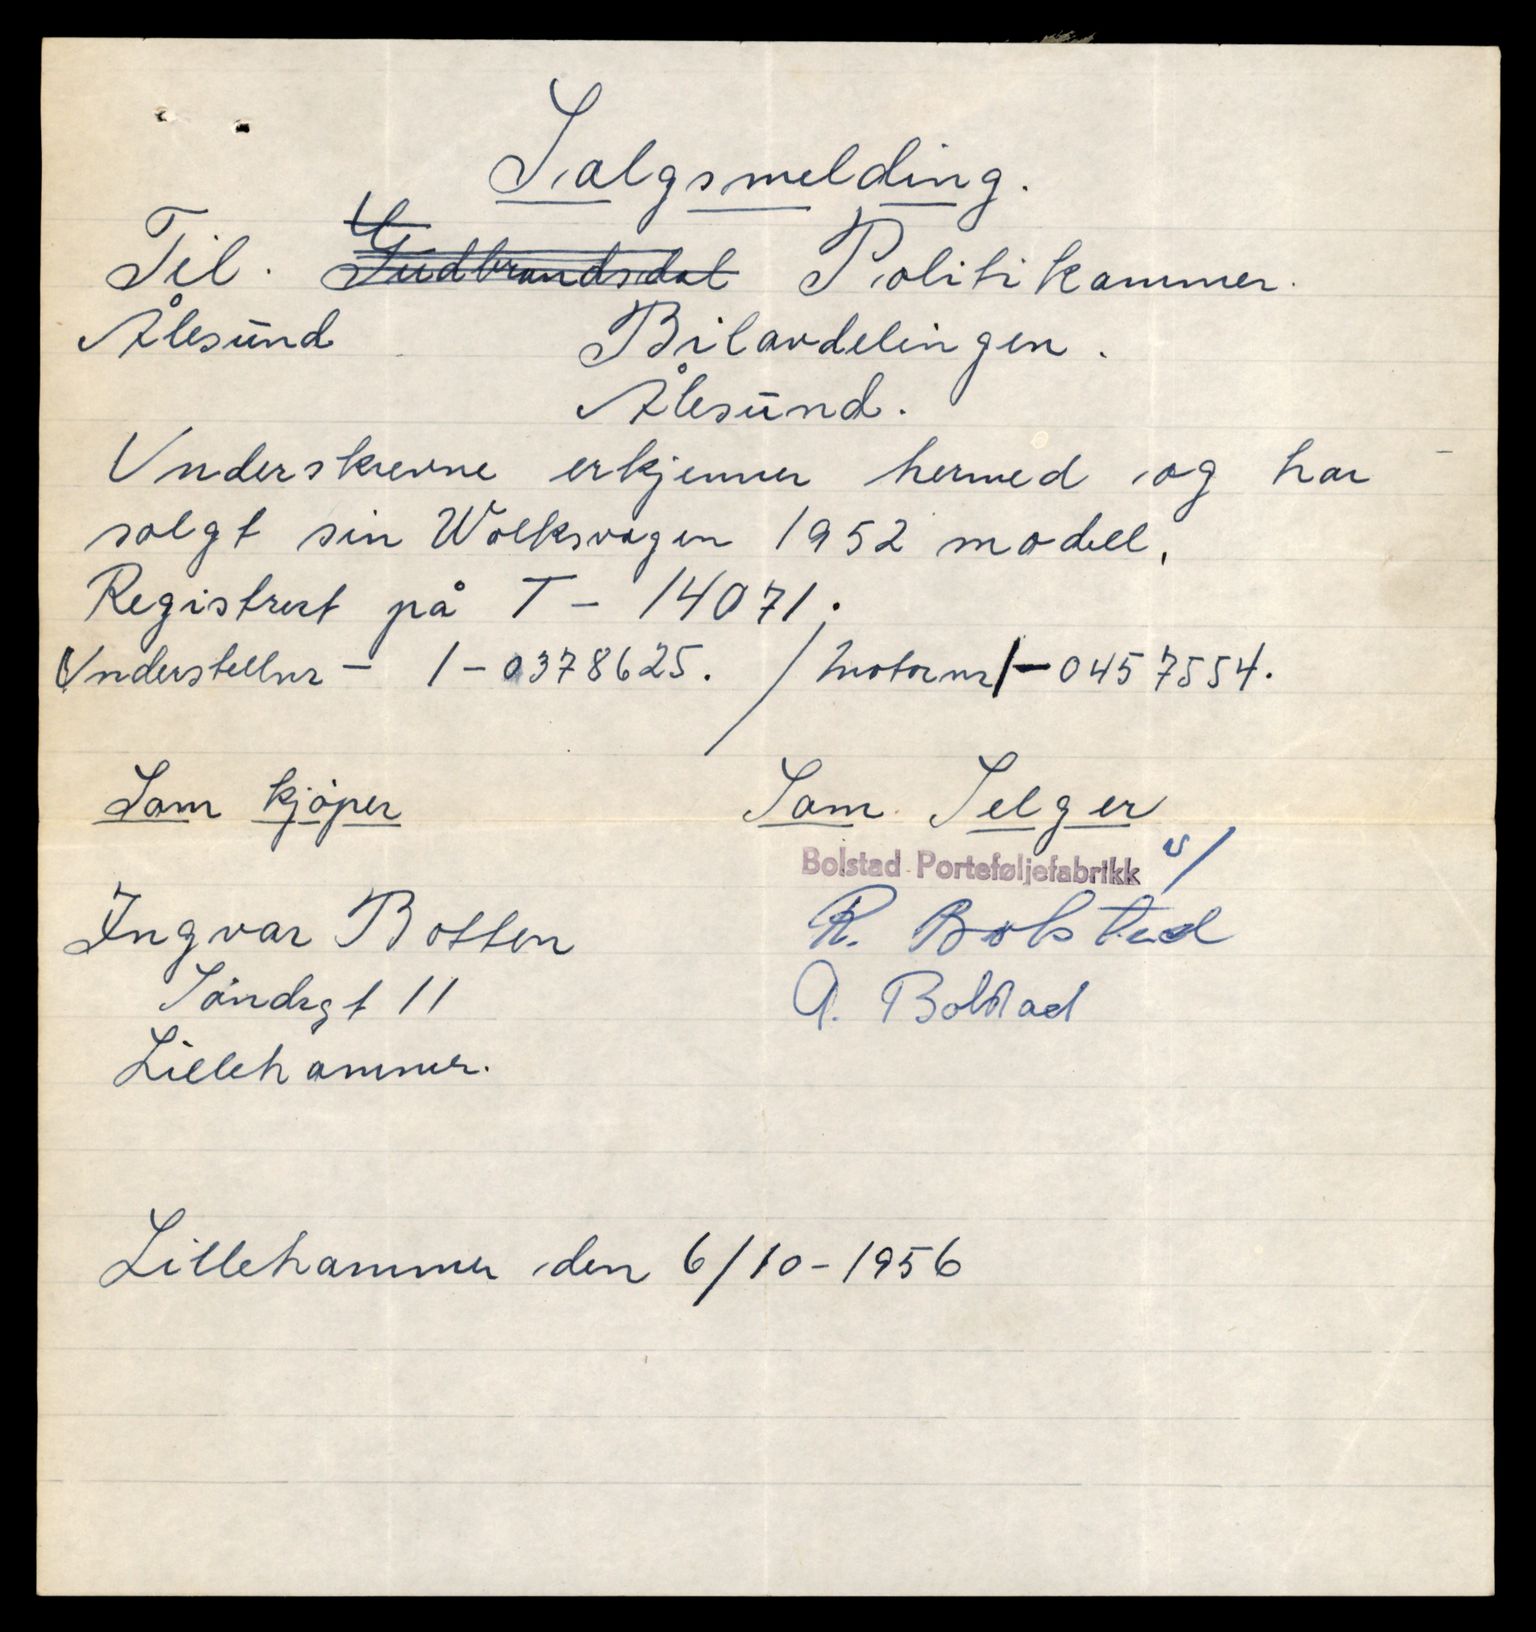 Salgsmelding.
Til. Gudbrandsdal Politikammer.
Ålesund Bilavdelingen.
Ålesund.
Underskrevne erkjenner hermed og har
solgt sin Wolksvagen 1952 modell,
Registrert på T - 14071.
Understellnr - 1 - 0378625. / Motornr 1 - 0457554.
Som kjøper Som Selger
Bolstad Porteføljefabrikk
Ingvar Botten R. Bolstad
11 A. Bolstad
Lillehammer.
Lillehammer den 6/10 - 1956